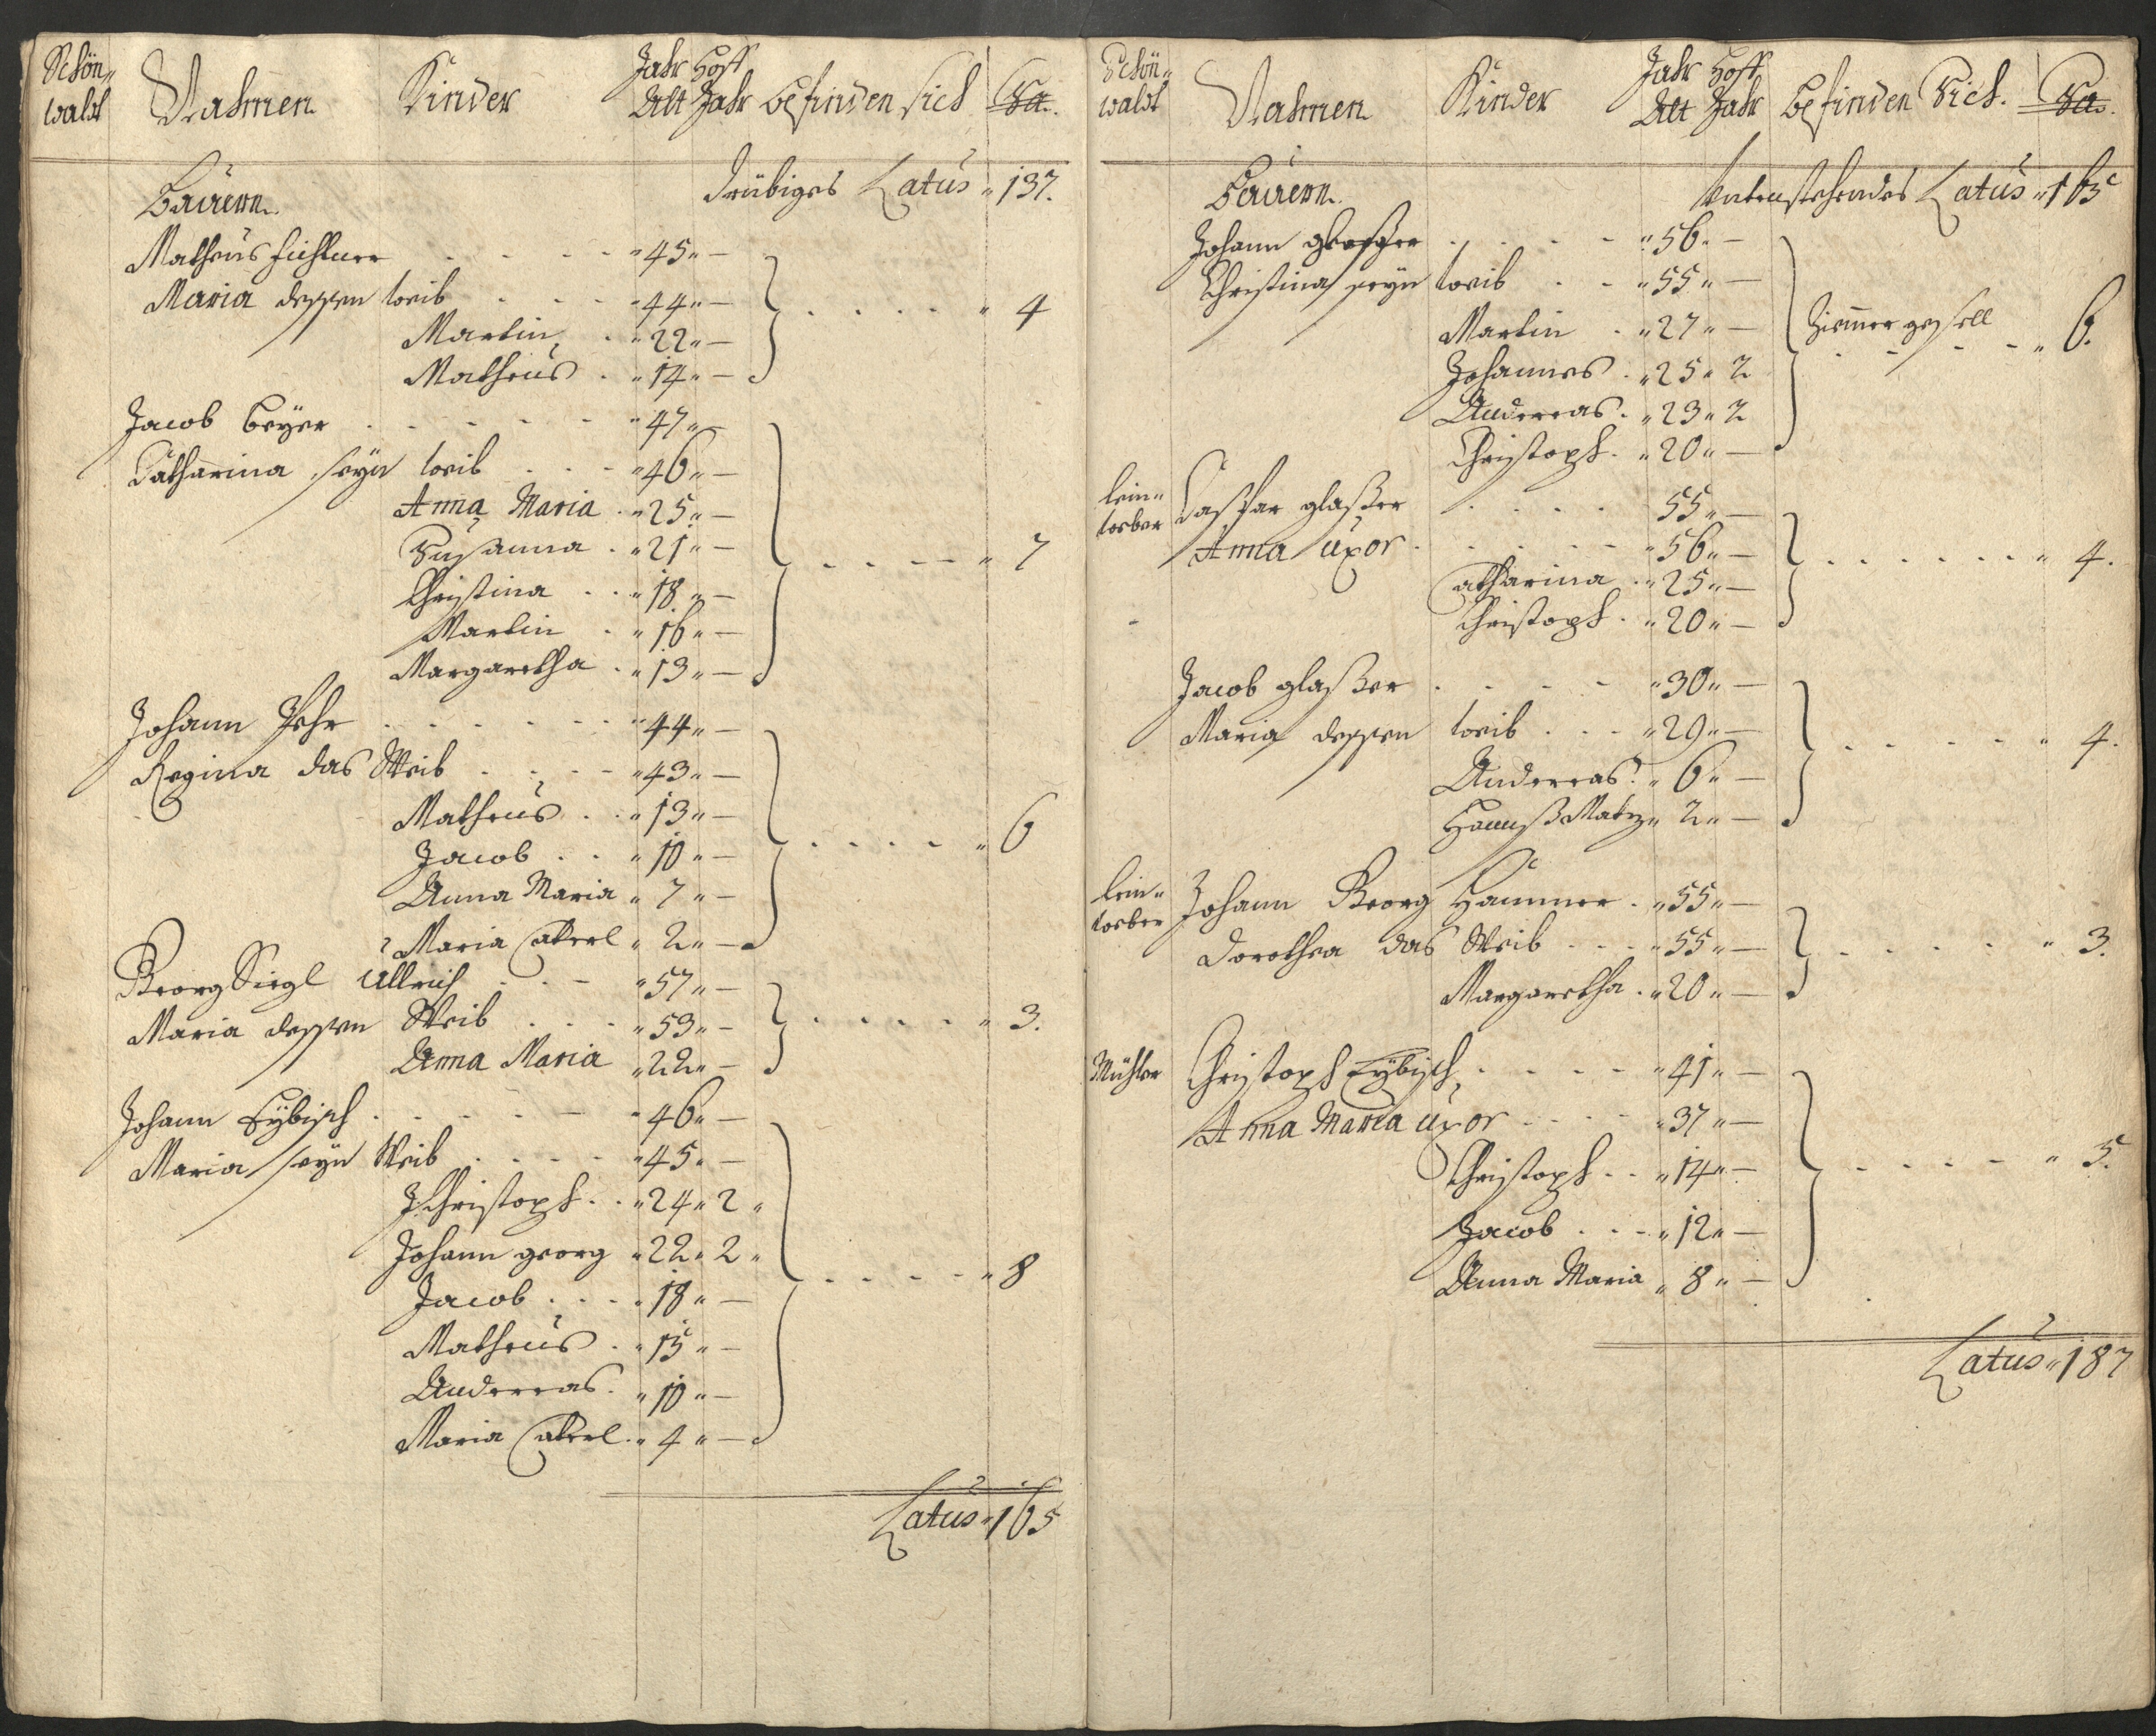 Schön„ Nahmen Kinder Jahr Hoff befinden sich Sa.
waldt Alt Jahr
Bauern drübiges Latus „ 137.
Matheus Fichtner „ 45 „ —
Maria dessen weib „ 44 „ — „ 4
Martin „ 22 „ —
Matheus „ 14 „ —
Jacob Beyer „ 47 „ —
Catharina seyn weib „ 46 „ —
Anna Maria „ 25 „ —
Susanna „ 21 „ — „ 7
Christina „ 18 „ —
Martin „ 16 „ —
Margaretha „ 13 „ —
Johann „ 44 „ —
Regina das Weib „ 43 „ —
Matheus „ 13 „ —
Jacob „ 10 „ — „ 6
Anna Maria „ 7 „ —
Maria Caterl „ 2 „ —
Georg Siegl Ullrich „ 57 „ —
Maria dessen Weib „ 53 „ — „ 3.
Anna Maria „ 22 „ —
Johann Eybisch „ 46 „ —
Maria seyn Weib „ 45 „ —
J. Christoph „ 24 „ 2 „
Johann georg „ 22 „ 2 „
Jacob „ 18 „ — „ 8
Matheus „ 15 „ —
Anderreas „ 10 „ —
Maria Caterl „ 4 „ —
Latus „ 165
Schön„ Nahmen Kinder Jahr Hoff befinden Sich. Sa.
waldt Alt Jahr
Bauern. Latus „ 165
Johann glasßer „ 56 „ —
Christina seyn weib „ 55 „ —
Martin „ 27 „ — Zimmer gesell „ 6.
Johannes „ 25 „ 2
Anderreas „ 23 „ 2
Christoph „ 20 „ —
lein„
weber Casspar glaßer 55 „ —
Anna uxor „ 56 „ — „ 4.
Catharina „ 25 „ —
Christoph „ 20 „ —
Jacob glaßer „ 30 „ —
Maria dessen weib „ 29 „ — „ 4.
Anderreas „ 6 „ —
Hannß Matz „ 2 „ —
lein„
weber Johann Georg Hammer „ 55 „ —
Dorothea das Weib „ 55 „ — „ 3.
Margaretha „ 20 „ —
Mühler Christoph Eybisch „ 41 „ —
Anna Maria uxor „ 37 „ —
Christoph „ 14 „ — „ 5.
Jacob „ 12 „ —
Anna Maria „ 8 „ —
Latus „ 187